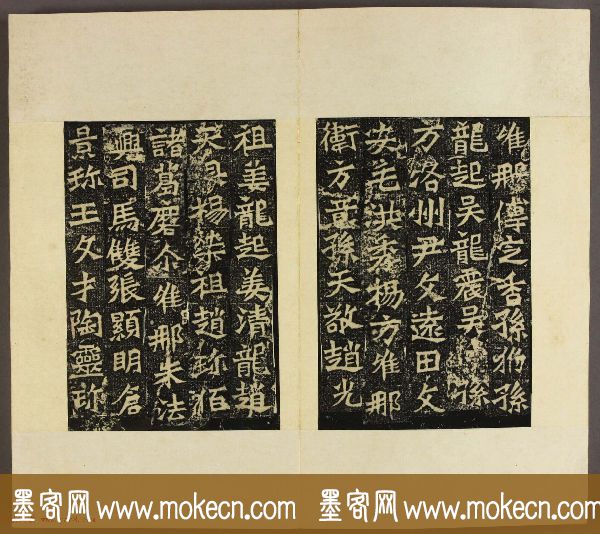 唯那傅定香孫孫
龍起吳龍震吳孫
万洛州尹文遠田文
安洪秀楊方唯那
衛方意孫天敬趙光
祖姜龍起姜清龍趙
楊榮祖趙珎
諸葛磨唯那朱法
興司馬雙張顯明倉
景珎王文才陶靈珎
墨客网 www.mokecn.com 墨客网 www.mokecn.com